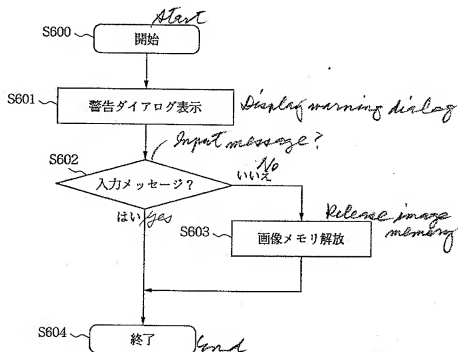 Start
S600
開始
S601
警告ダイアログ表示
Display warning dialog
Input message?
S602
入力メッセージ?
No
いいえ
はい Yes
Release image
memory
S603
画像メモリ解放
S604
終了
End